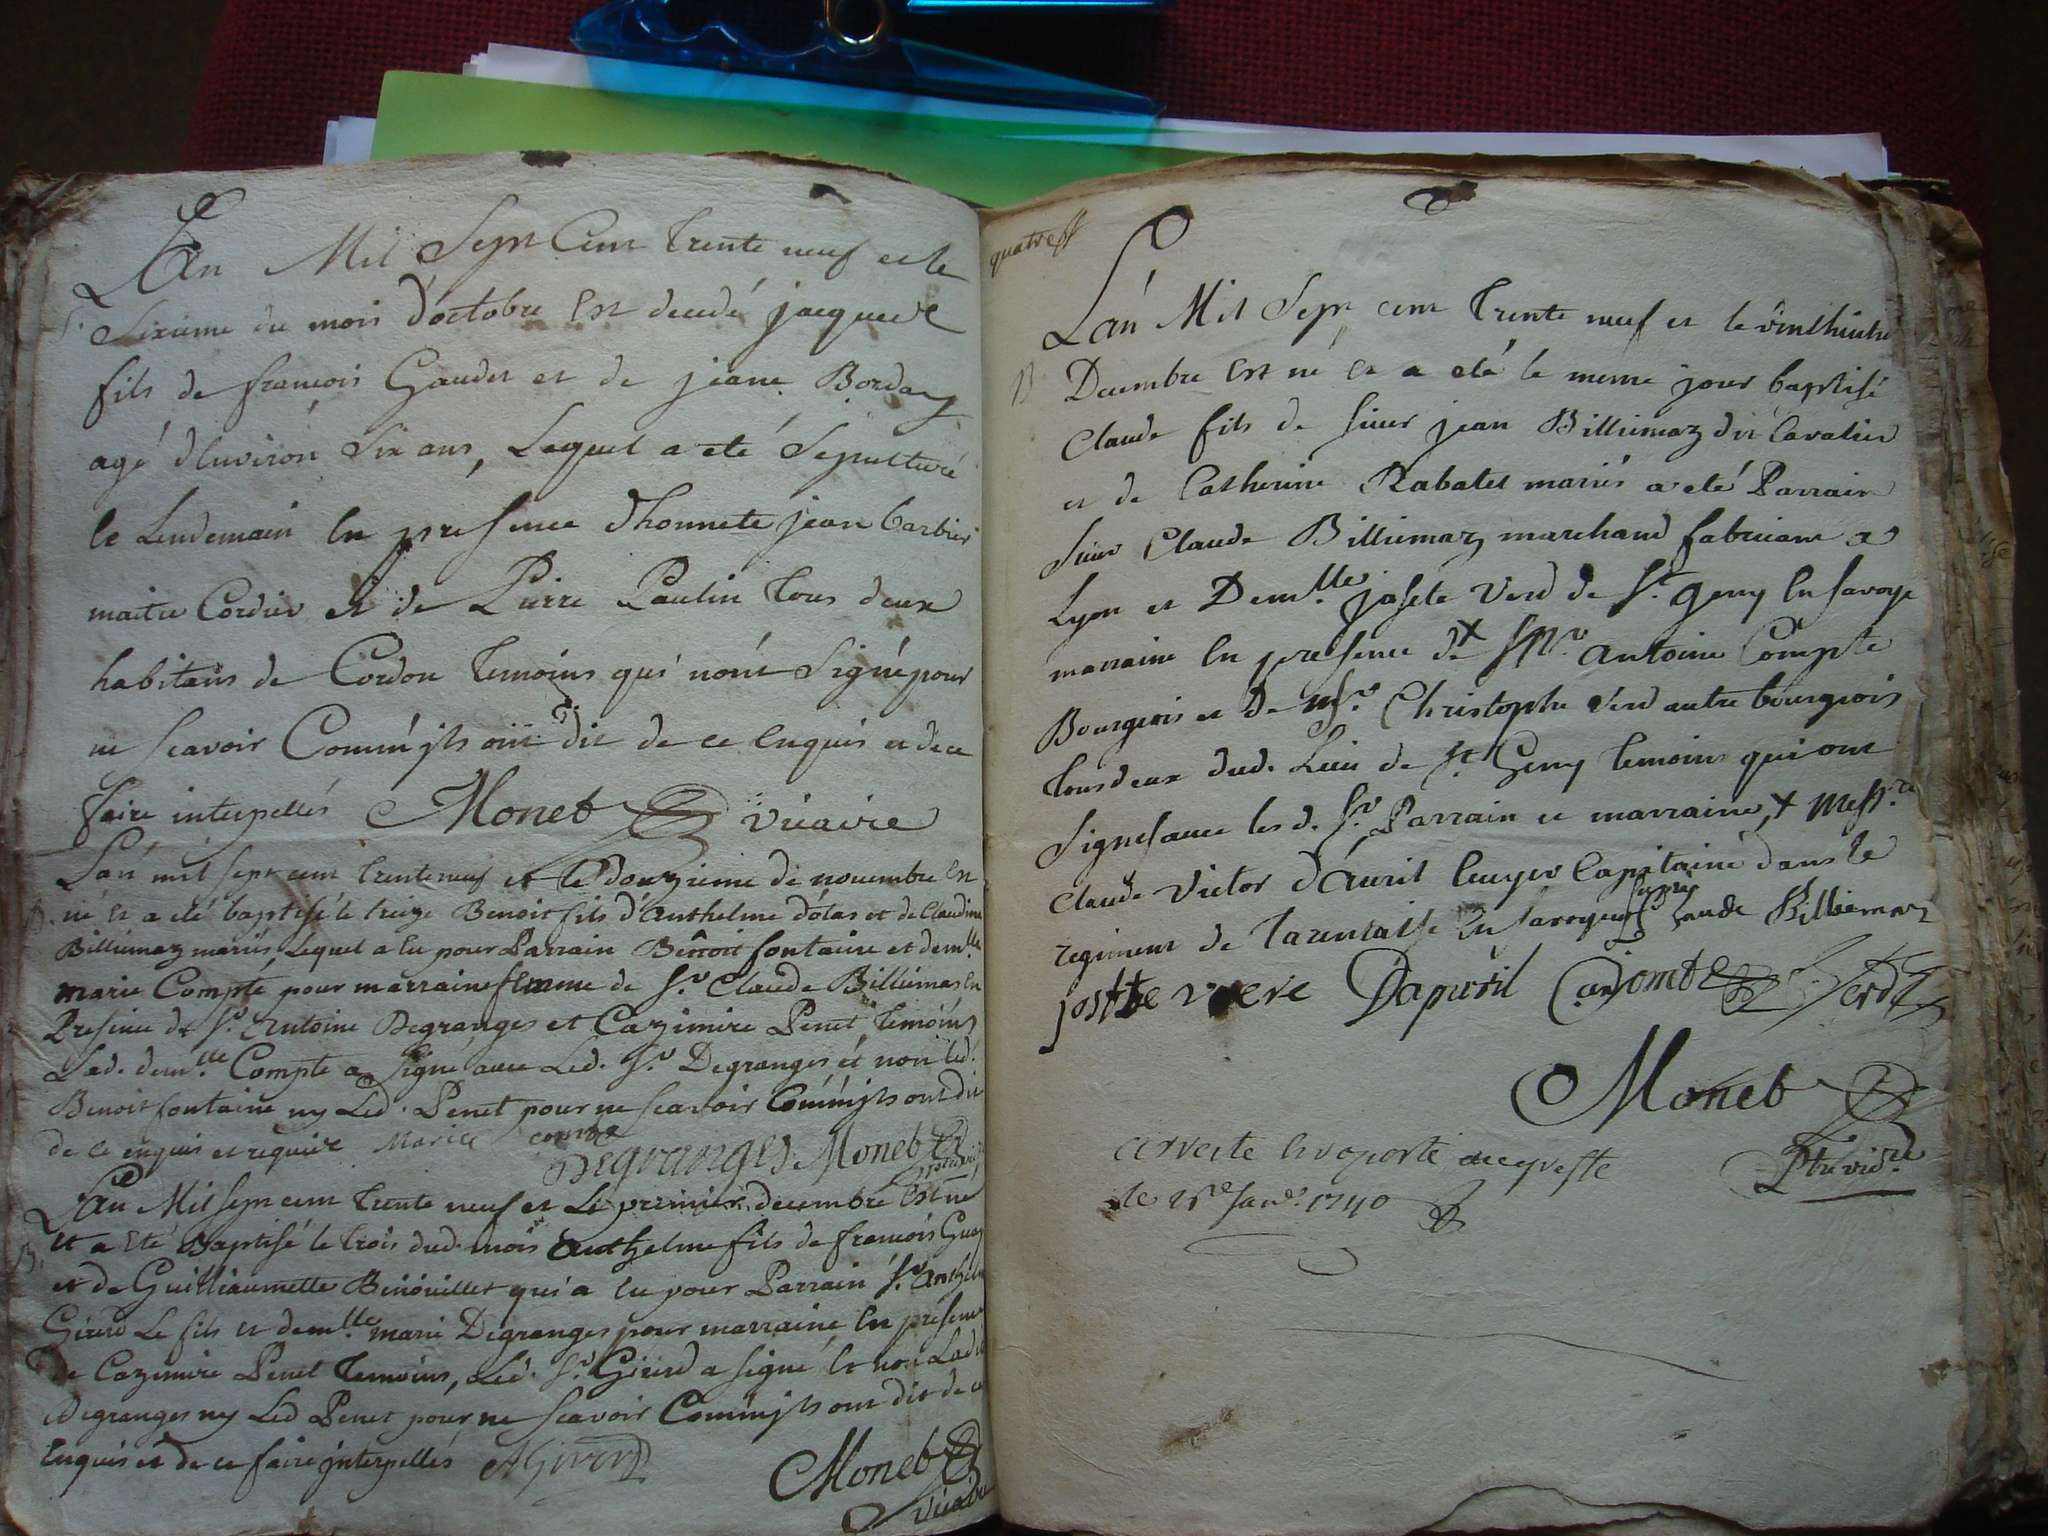 Lan Mil Sept Cent trente neuf et le
S. Sixieme du mois d'octobre Est decedé jacques
fils de francois Gaudet et de jeane Borday
agé d'Environ Six ans, Lequel a eté Sepulturé
le Lendemain En presence d'honnete jean barbier
maitre Cordier et de Pierre Paulin tous deux
habitans de Cordon temoins qui n'ont Signé pour
ne scavoir Comm'jls ont dit de ce Enquis et de ce
faire interpellés Monet vicaire
Lan mil sept cent trente neuf et le douzieme de novembre Est
B. né Et a eté baptisé le treize Benoit fils d'Anthelme dolas et de Claudine
Billiemaz mariés, Lequel a Eu pour Parrain Benoit fontaine et demlle
marie Compte pour marraine femme de Sr. Claude Billiemas En
Presence de Sr. Antoine Degranges et Cazimire Penet temoins
Lad. demlle Compte a signé avec Led. Sr Degranges et non led.
Benoit fontaine ny Led. Penet pour ne scavoir Comm'jls ont dit
de ce enquis et requise Marie comte
Degranges Monet
Lan Mil Sept cent trente neuf et Le premier decembre Est né
B. Et a Eté Baptisé le trois dud. mois Anthelme fils de francois Guay
et de Guilliaumette Binouillet qui a Eu pour Parrain Sr. Anthelme
Girerd Le fils et demlle marie Degranges pour marraine En presence
de Cazimire Penet temoins, Led. Sr. Girerd a signé Et non Ladte
Degranges ny Led Penet pour ne scavoir Comm'jls ont dit de ce
Enquis et de ce faire jnterpellés AGirerd
Monet
vicaire
quatre
Lan Mil Sept cent trente neuf et le vinthuitre
B Decembre Est né Et a eté le meme jour baptisé
Claude fils de sieur jean Billiemaz dit Cavalier
et de Catherine Rabatet mariés a eté Parrain
sieur Claude Billiemaz marchand fabricant a
Lyon et Demlle josete Verd de St. geny En savoye
marraine En presence de Sr. Antoine Compte
Bourgeois et de Mr. Christophe Verd autre bourgeois
tous deux dud. Lieu de St. Geny temoins qui ont
Signes avec les d. Sr. Parrain et marraine, X Messre
Claude Victor d'Avril Ecuyer Capitaine dans le
regiment de Tarentaise En savoye Claude Billiemaz
josete vere Dapvril Comte Verd
Monet
Ptre vicre
arreste Et raporté au greffe
le janer. 1740